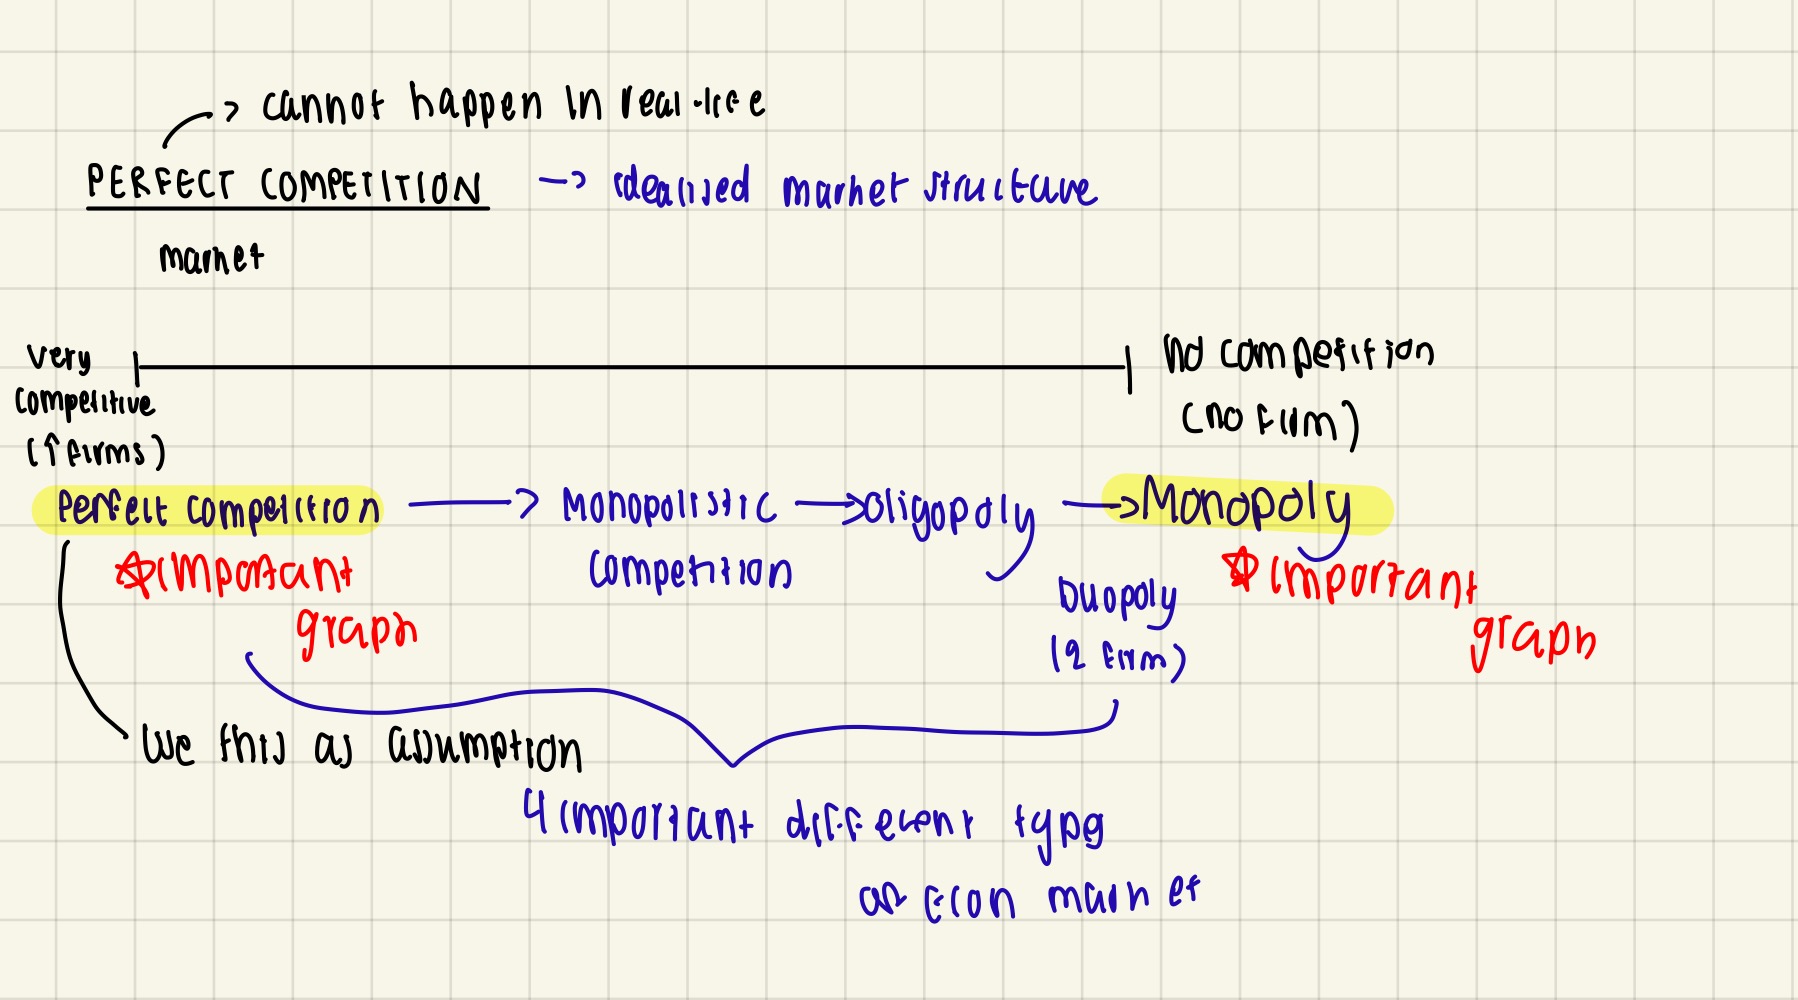 cannot happen in real-life
PERFECT COMPETITION -> idealised market structure
market
very
competitive
(↑ firms)
no competition
(no firm)
Perfect competition → Monopolistic → Oligopoly → Monopoly
competition
☆ important
graph
Duopoly
(2 firm)
☆ important
graph
use this as assumption
4 important different types
of econ market